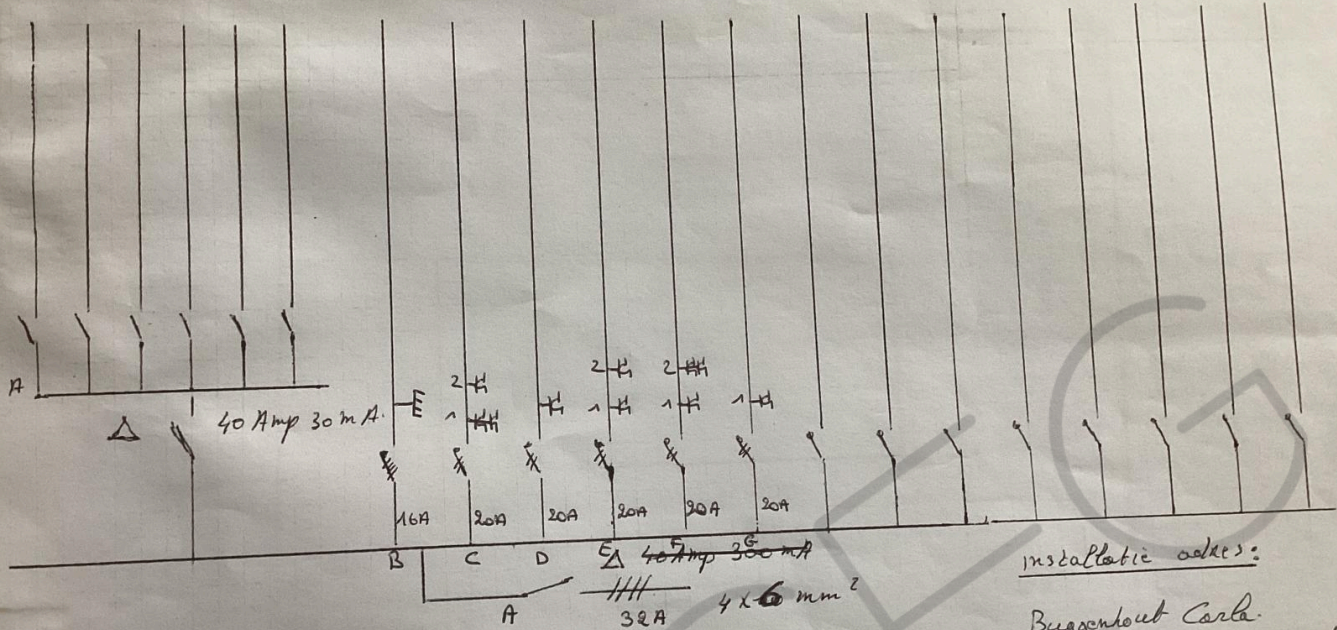 A
40 Amp 30 mA.
2
2
2
1
1
1
1
16A
20A
20A
20A
20A
20A
B
C
D
E
F
G
40 Amp 300 mA
A
32A
4 x 6 mm²
installatie adres:
Buggenhout Carla.